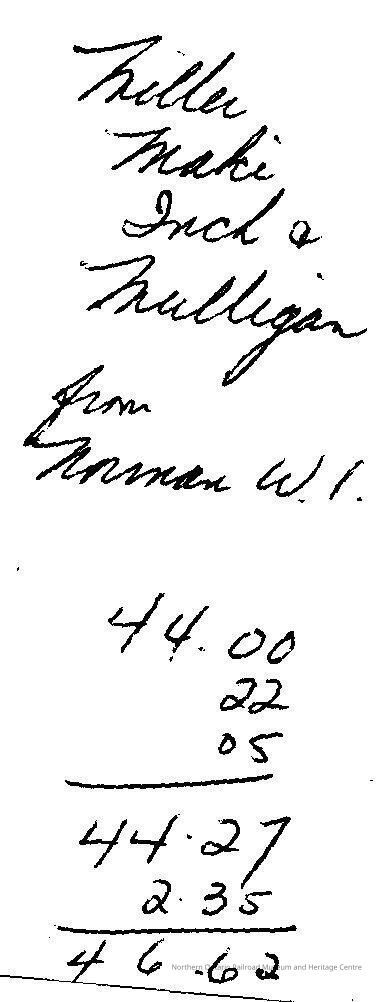 Miller
Maki
Inch &
Mulligan
from
Norman W. I.
44.00
22
05
44.27
2.35
46.62
Northern Ontario Railroad Museum and Heritage Centre